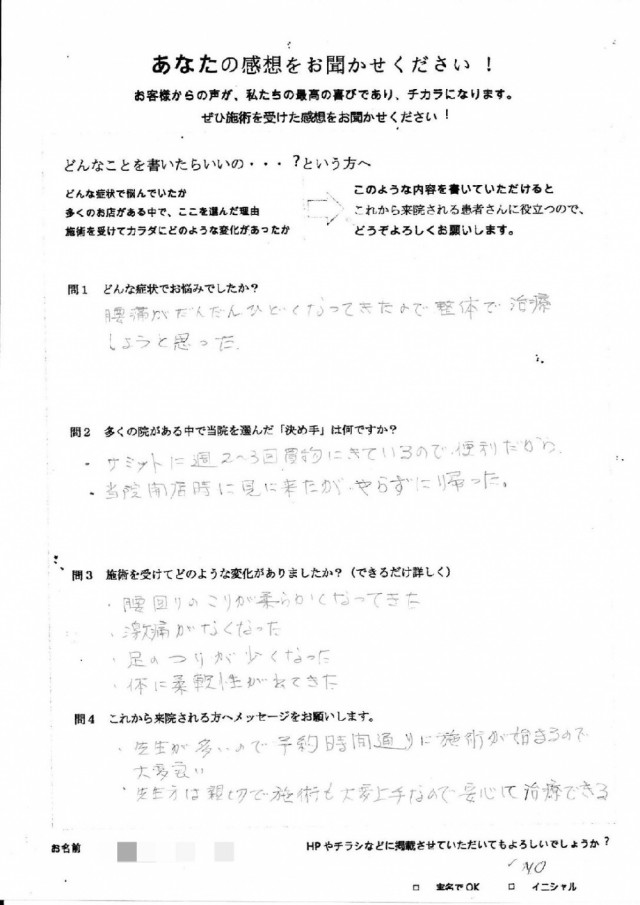 あなたの感想をお聞かせください！
お客様からの声が、私たちの最高の喜びであり、チカラになります。
ぜひ施術を受けた感想をお聞かせください！
どんなことを書いたらいいの・・・？という方へ
どんな症状で悩んでいたか
多くのお店がある中で、ここを選んだ理由
施術を受けてカラダにどのような変化があったか
このような内容を書いていただけると
これから来院される患者さんに役立つので、
どうぞよろしくお願いします。
問1 どんな症状でお悩みでしたか？
腰痛がだんだんひどくなってきたので整体で治療
しようと思った.
問2 多くの院がある中で当院を選んだ「決め手」は何ですか？
・サミットに週2~3回買物にきているので、便利だから.
・当院開店時に見に来たが、やらずに帰った。
問3 施術を受けてどのような変化がありましたか？（できるだけ詳しく）
・腰回りのこりが柔らかくなってきた
・激痛がなくなった
・足のつりが少くなった
・体に柔軟性が出てきた
問4 これから来院される方へメッセージをお願いします。
・先生が多いので予約時間通りに施術が始まるので
大変良い
・先生方は親切で施術も大変上手なので安心して治療できる
お名前
HPやチラシなどに掲載させていただいてもよろしいでしょうか？
✓NO
□ 実名でOK □ イニシャル